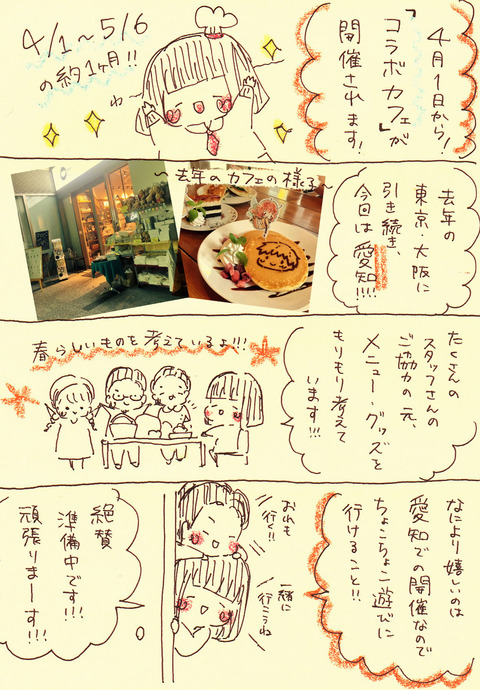 4月1日から!
「コラボカフェ」が
開催されます!
4/1〜5/6
の約1ヶ月!!
わー
去年の
東京、大阪に
引き続き、
今回は愛知!!!!
〜去年のカフェの様子〜
たくさんの
スタッフさんの
ご協力の元、
メニュー・グッズを
もりもり考えて
います!!!
春らしいものを考えているよ!!!
なにより嬉しいのは
愛知での開催なので
ちょこちょこ遊びに
行けること!!
おれも
行く!!
一緒に
行こうね
絶賛
準備中です!!!
頑張りまーす!!!